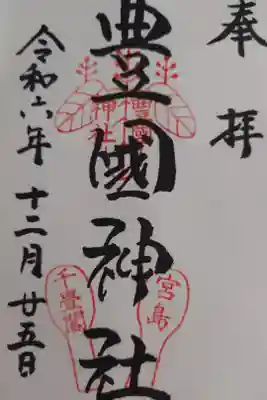 奉拝
豊國神社
豊國
神社
宮島
千畳閣
令和六年十二月廿五日